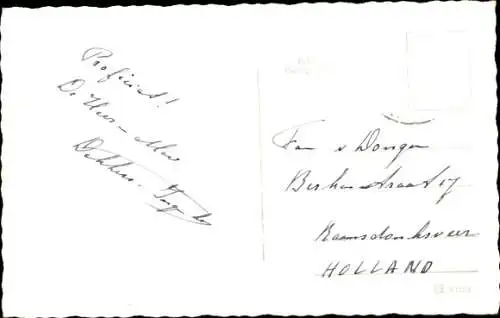 Proficiat!
De Heer - Mevr
Dekkers -
Fam v Dongen
Berkenstraat 17
Raamsdonksveer
HOLLAND